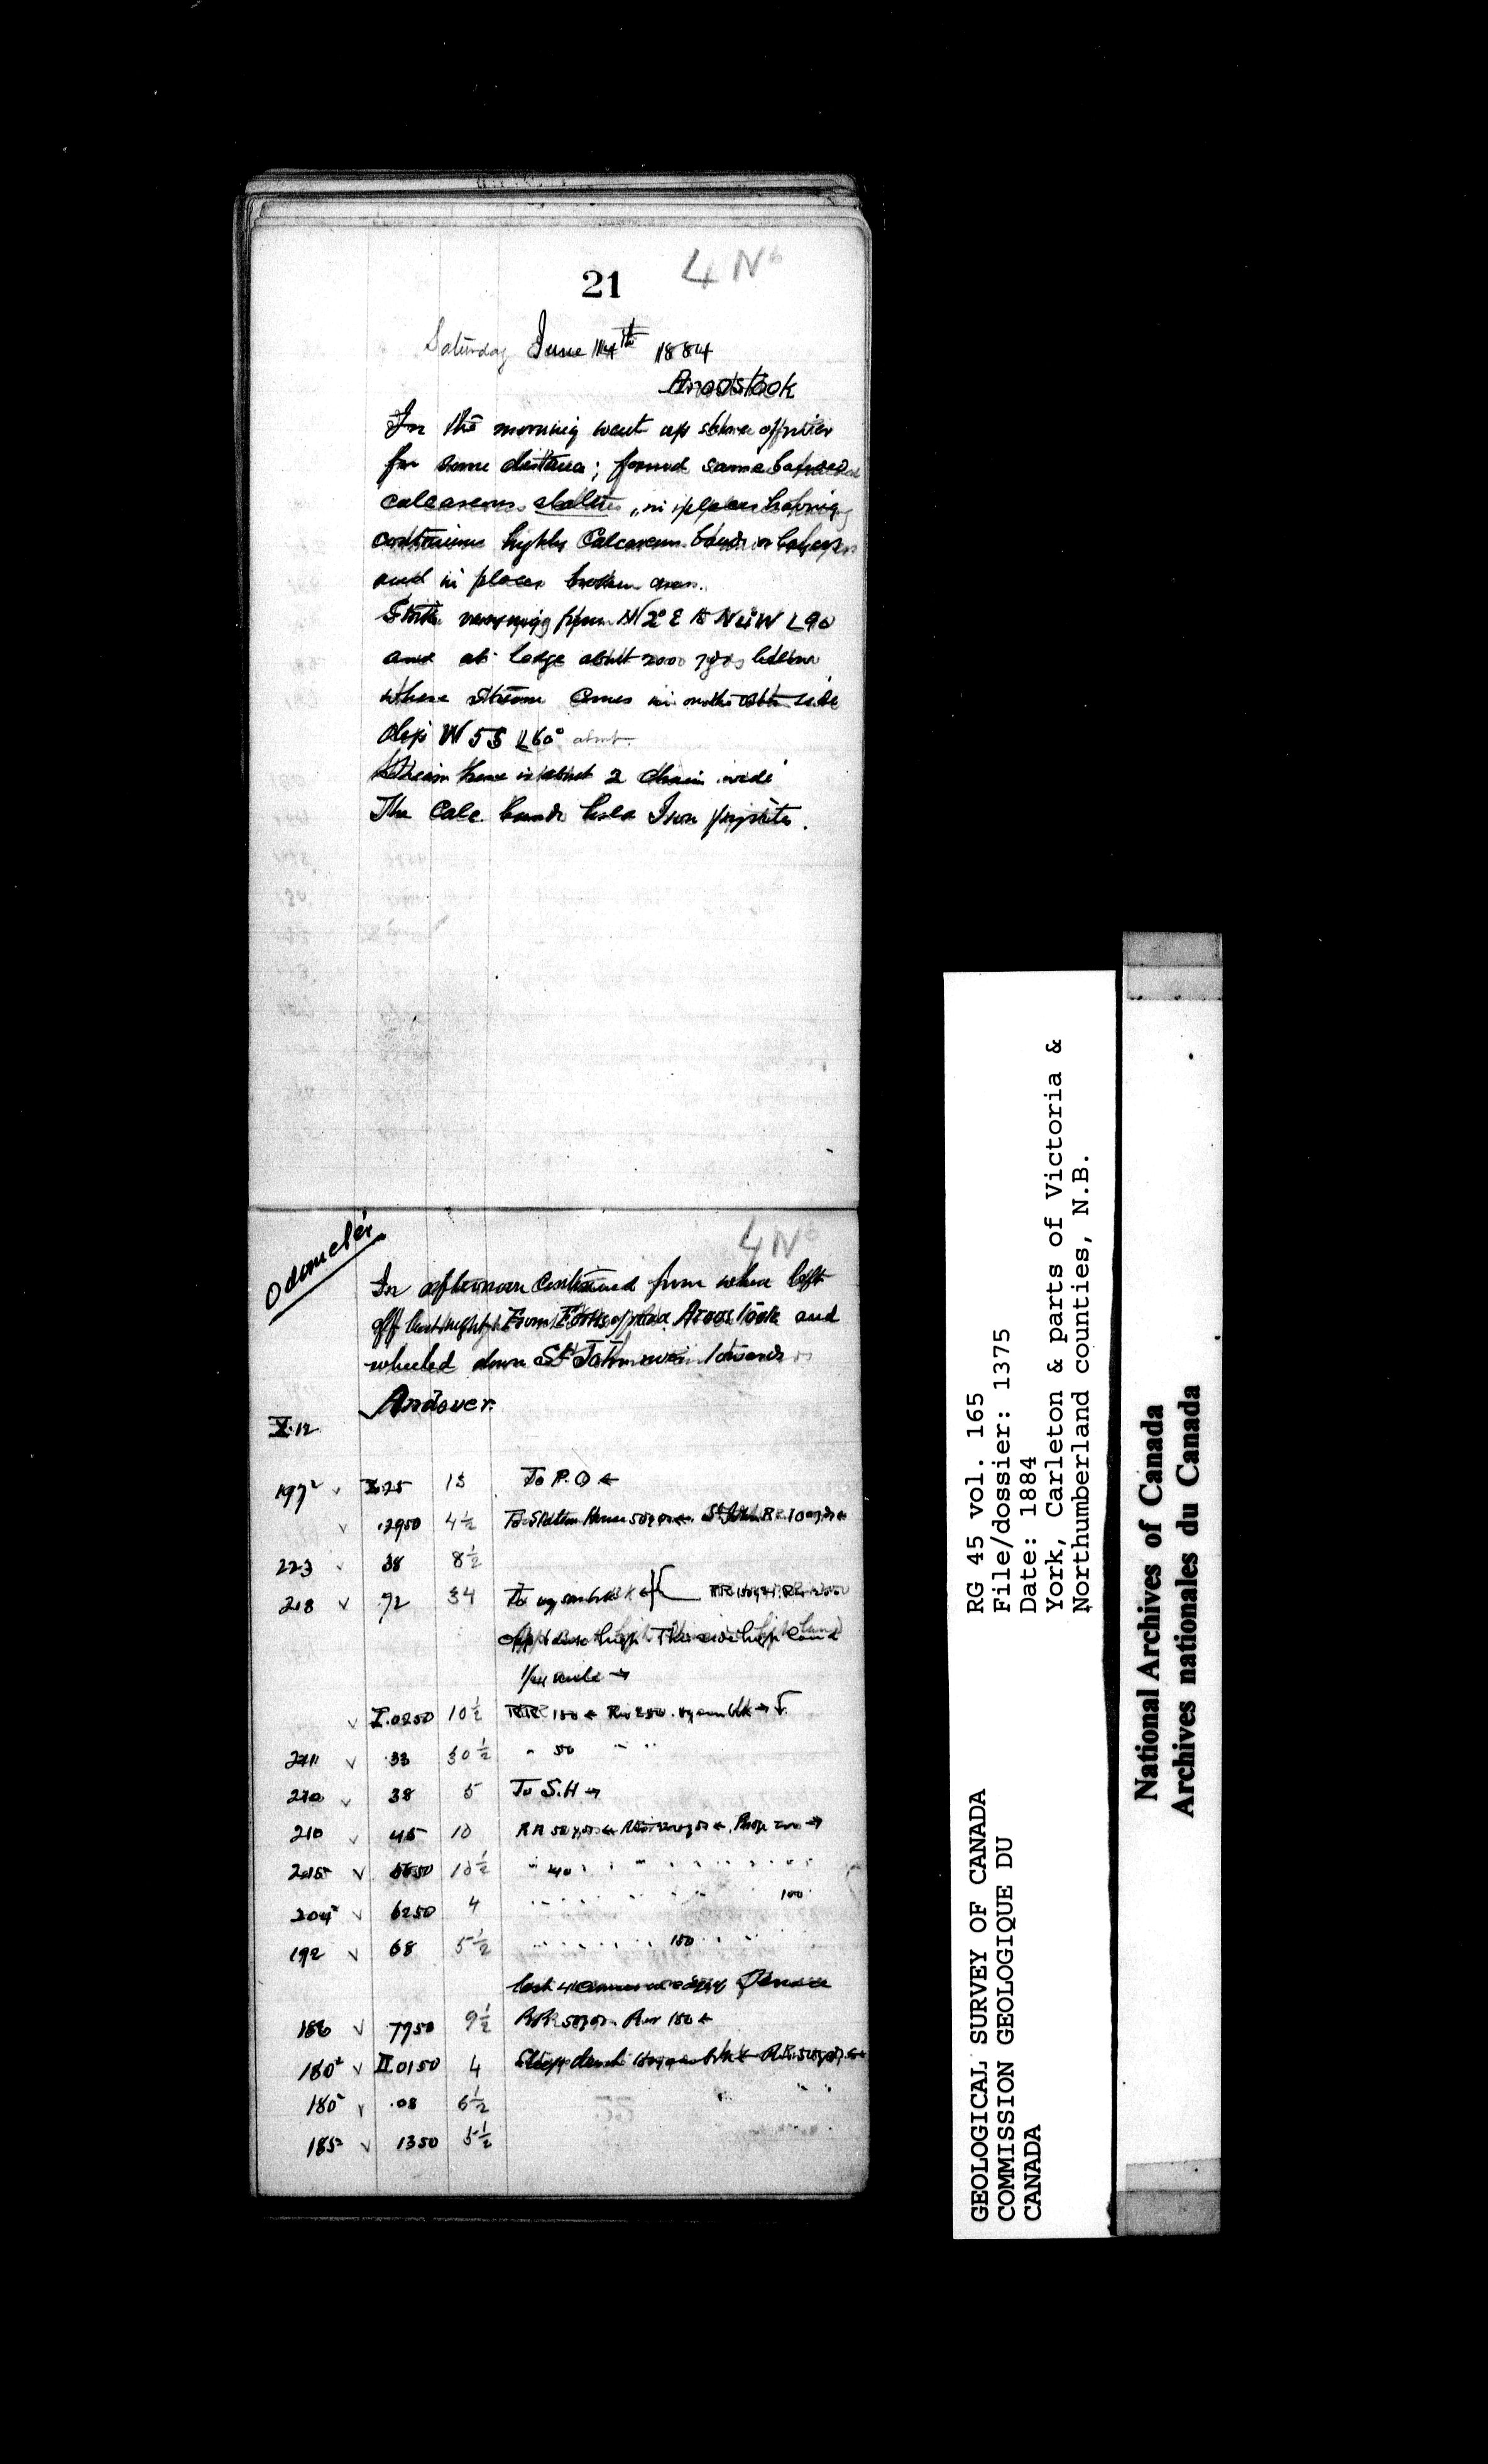 21
4 No
Saturday June 14th 1884
Aroostook
In the morning went up shore of river
for some distance; found same banded
calcareous slates, in places having
continuous highly Calcareous bands or layers
and in places broken ones.
Strike varying from N 2° E to N 4° W L 90
and at ledge about 2000 yds below
where stream comes in on other side
dip W 5 S L 60° about
Stream here is about 2 chain wide
The Calc bands hold Iron pyrites.
Odometer
4 No
In afternoon continued from where left
off last night from Forks of road Aroostook and
wheeled down St John river towards
Andover.
X.12
197 X.25 13 To P.O ←
.2950 4½ To Station House 50 yds ← St John R
223 38 8½
218 .92 34 To
high land
1/4 mile →
I.0250 10½ RR 150 ← Riv 250
211 .33 30½ " 50 " "
210 38 5 To S.H →
210 45 10 RR 50 yds ←
215 5650 10½ " 40 " "
204 6250 4 100
192 68 5½ 150
186 7750 9½ RR 50 yds Riv 150 ←
180 II.0150 4
180 .08 6½
185 1350 5½
RG 45 vol. 165
File/dossier: 1375
Date: 1884
York, Carleton & parts of Victoria &
Northumberland counties, N.B.
GEOLOGICAL SURVEY OF CANADA
COMMISSION GEOLOGIQUE DU
CANADA
National Archives of Canada
Archives nationales du Canada